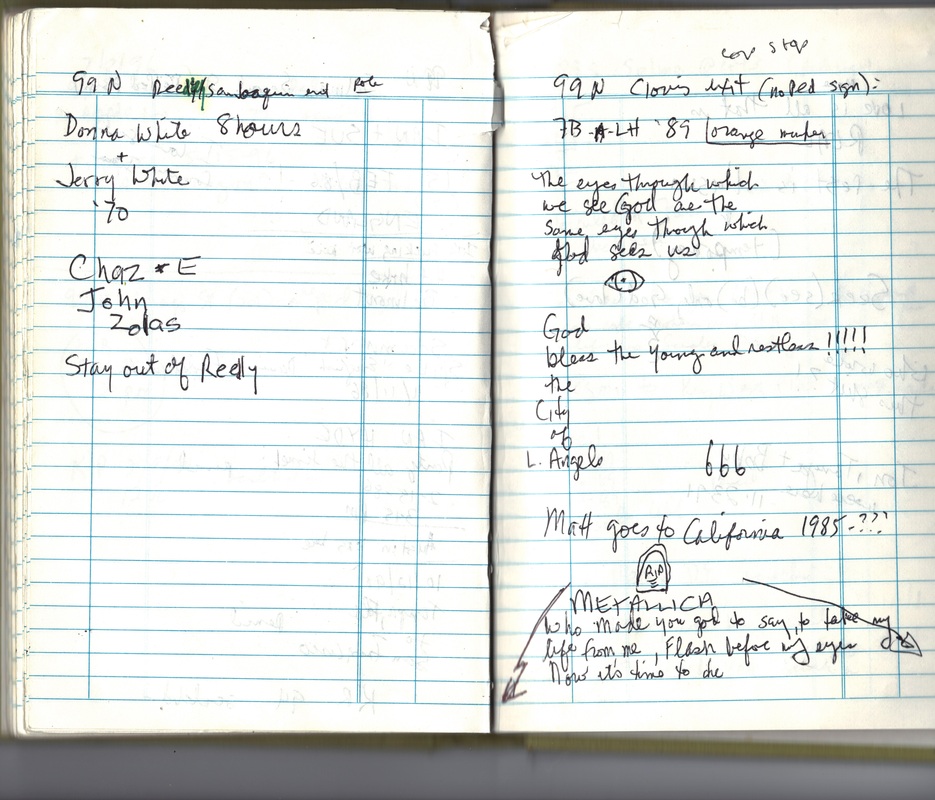 99 N Reedly sanbaquin exit Pole
Donna White 8 hours
+
Jerry White
'70
Chaz * E
John
Zolas
Stay out of Reedly
cop stop
99 N Clovis exit (no ped sign):
7B-A-LH '89 orange marker
The eyes through which
we see God are the
same eyes though which
God sees us
God
bless the young and restless !!!!!
the
City
of
L. Angelo
666
Matt goes to California 1985-???
RIP
METALLICA
Who made you god to say, to take my
life from me, Flash before my eyes
Now it's time to die